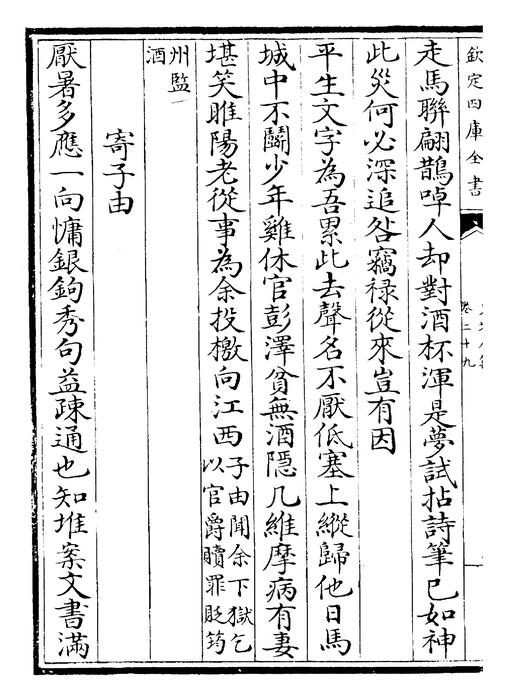 欽定四庫全書
卷二十九
走馬聯翩鵲啅人却對酒杯渾是夢試拈詩筆已如神
此災何必深追咎竊禄從來豈有因
平生文字為吾累此去聲名不厭低塞上縱歸他日馬
城中不鬭少年雞休官彭澤貧無酒隠几維摩病有妻
堪笑睢陽老從事為余投檄向江西子由聞余下獄乞
以官爵贖罪貶筠
州監
酒
寄子由
厭暑多應一向慵銀鉤秀句益疎通也知堆案文書滿